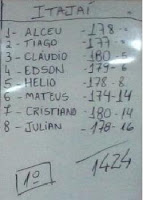 ITAJAÍ
1- ALCEU - 178 -
2- TIAGO - 177 -
3- CLAUDIO - 180 -
4- EDSON - 179 - 6
5- HELIO - 178 - 8
6- MATEUS - 174 - 14
7- CRISTIANO - 180 - 14
8- JULIAN - 178 - 16
1º 1424